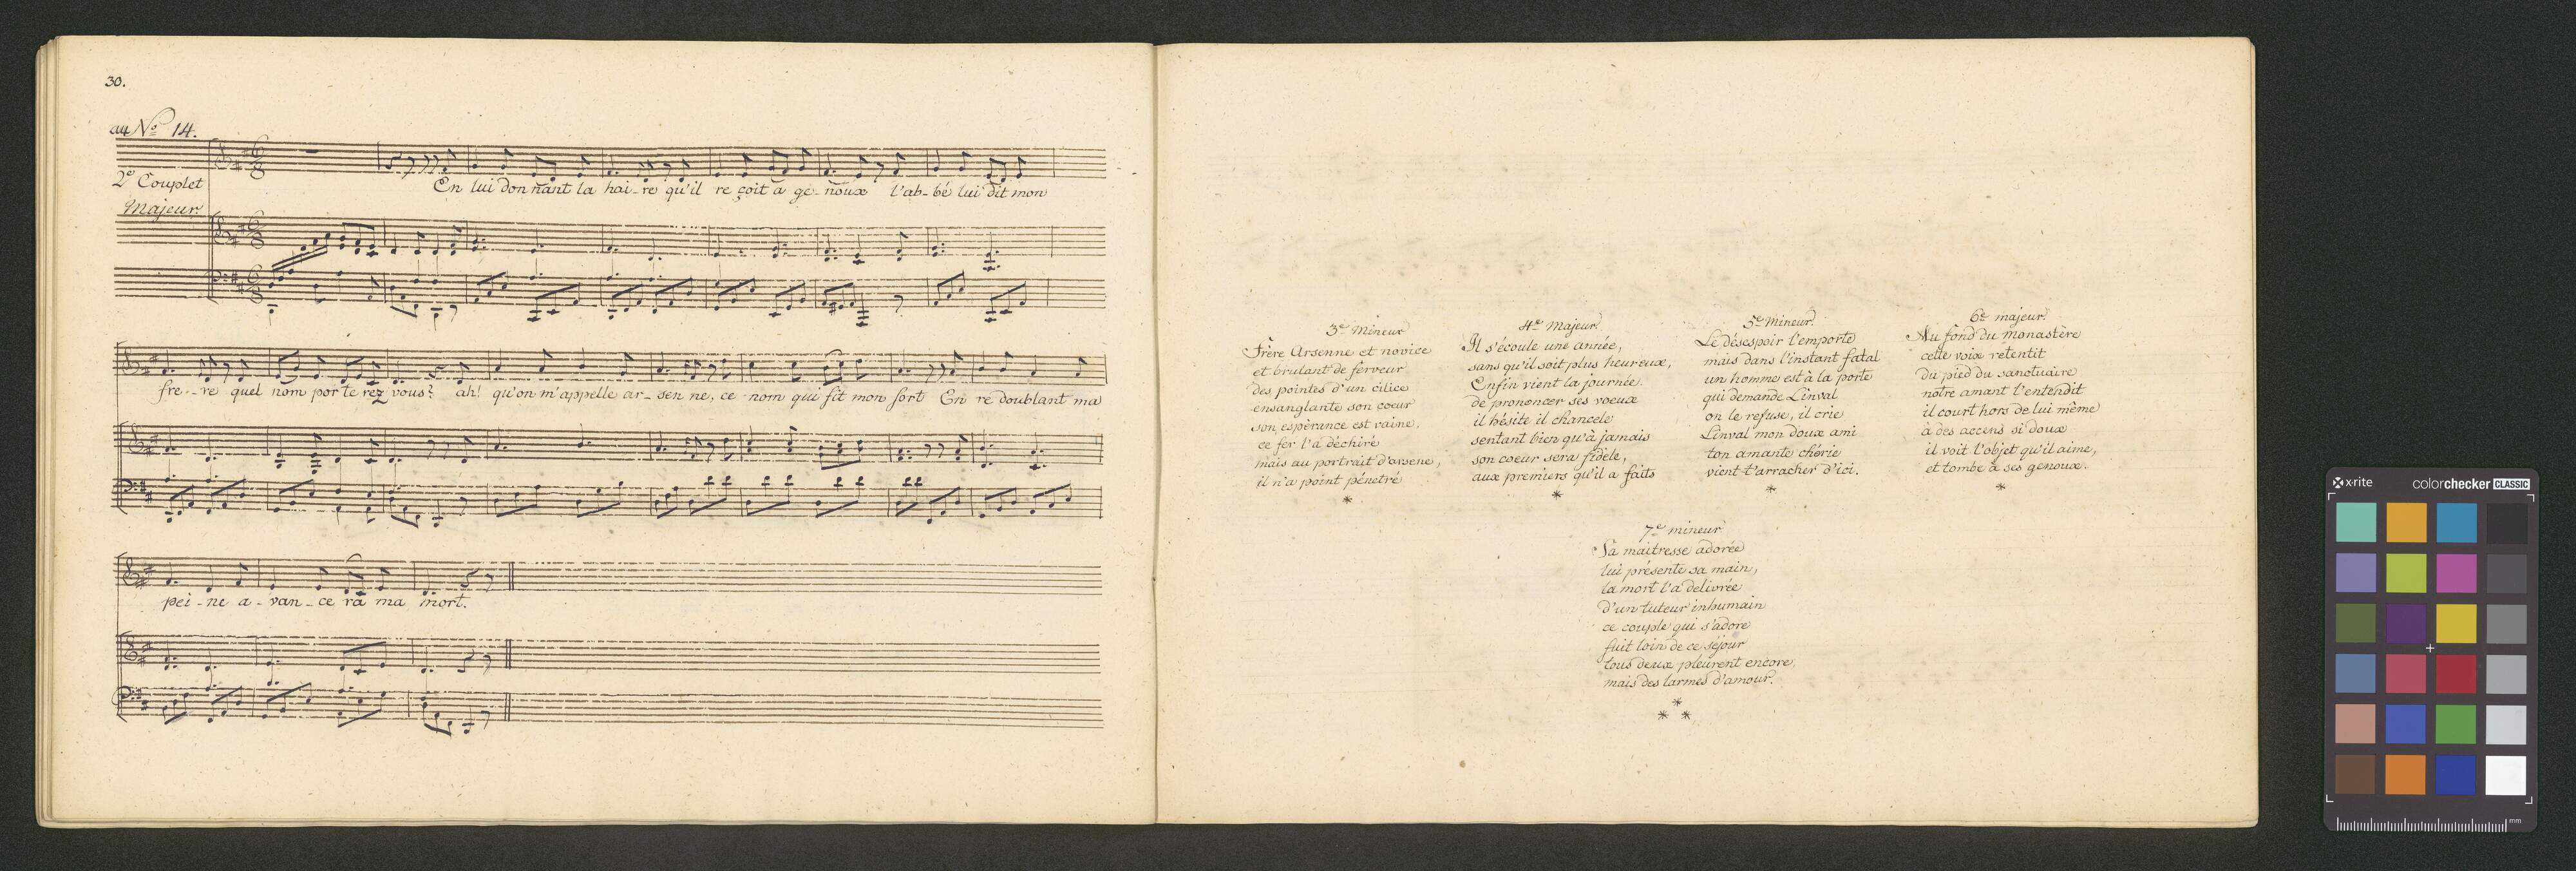 30.
au No 14.
2e Couplet
Majeur.
En lui donnant la hai-re qu'il re çoit à ge-noux l'ab-bé lui dit mon
fre--re quel nom porterez vous? ah! qu'on m'appelle ar-senne, ce nom qui fit mon sort En redoublant ma
pei-ne a-van-ce ra ma mort.
3e Mineur
Frère Arsenne et novice
et brulant de ferveur
des pointes d'un cilice
ensanglante son coeur
son espérance est vaine,
ce fer l'a déchiré
mais au portrait d'arsene,
il n'a point pénetré
*
4e Majeur.
Il s'écoule une année,
sans qu'il soit plus heureux,
Enfin vient la journée
de prononcer ses voeux
il hésite il chancele
sentant bien qu'à jamais
son coeur sera fidèle,
aux premiers qu'il a faits
*
5e Mineur.
Le désespoir l'emporte
mais dans l'instant fatal
un homme est à la porte
qui demande Linval
on le refuse, il crie
Linval mon doux ami
ton amante chérie
vient t'arracher d'ici.
*
6e majeur.
Au fond du monastère
cette voix retentit
du pied du sanctuaire
notre amant l'entendit
il court hors de lui même
à des accens si doux
il voit l'objet qu'il aime,
et tombe à ses genoux.
*
7e mineur
Sa maitresse adorée
lui présente sa main,
la mort l'a delivrée
d'un tuteur inhumain
ce couple qui s'adore
fuit loin de ce séjour
tous deux pleurent encore,
mais des larmes d'amour.
*
* *
x-rite colorchecker CLASSIC
mm